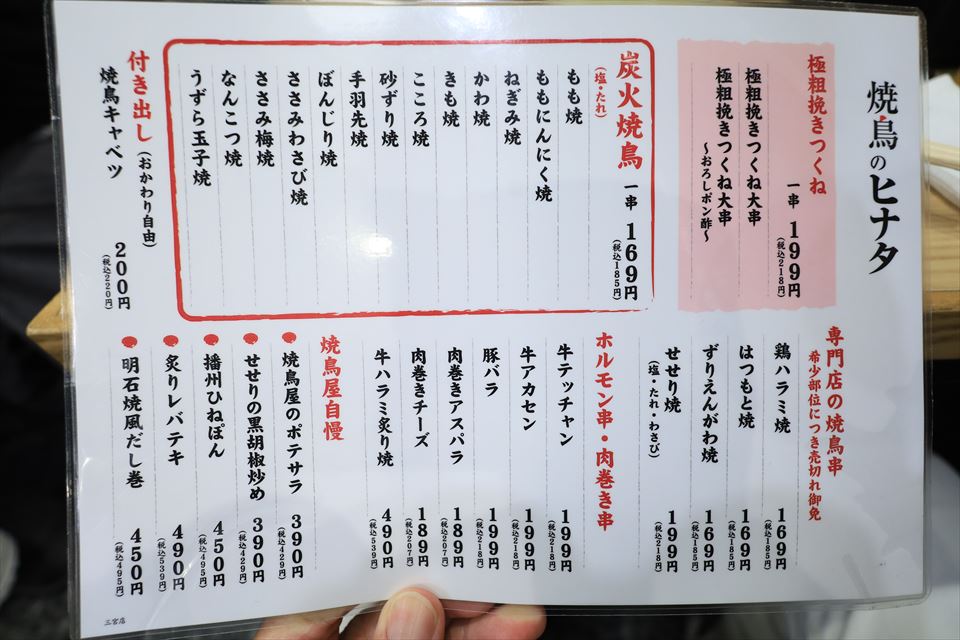 焼鳥のヒナタ
極粗挽きつくね
一串 199円
(税込218円)
極粗挽きつくね大串
極粗挽きつくね大串
～おろしポン酢～
炭火焼鳥 一串 169円
(塩・たれ)
(税込185円)
もも焼
ももにんにく焼
ねぎみ焼
かわ焼
きも焼
こころ焼
砂ずり焼
手羽先焼
ぼんじり焼
ささみわさび焼
ささみ梅焼
なんこつ焼
うずら玉子焼
付き出し(おかわり自由)
焼鳥キャベツ 200円
(税込220円)
専門店の焼鳥串
希少部位につき売切れ御免
鶏ハラミ焼 169円
(税込185円)
はつもと焼 169円
(税込185円)
ずりえんがわ焼 169円
(税込185円)
せせり焼 199円
(塩・たれ・わさび) (税込218円)
ホルモン串・肉巻き串
牛テッチャン 199円
(税込218円)
牛アカセン 199円
(税込218円)
豚バラ 199円
(税込218円)
肉巻きアスパラ 189円
(税込207円)
肉巻きチーズ 189円
(税込207円)
牛ハラミ炙り焼 490円
(税込539円)
焼鳥屋自慢
焼鳥屋のポテサラ 390円
(税込429円)
せせりの黒胡椒炒め 390円
(税込429円)
播州ひねぽん 450円
(税込495円)
炙りレバテキ 490円
(税込539円)
明石焼風だし巻 450円
(税込495円)
三宮店